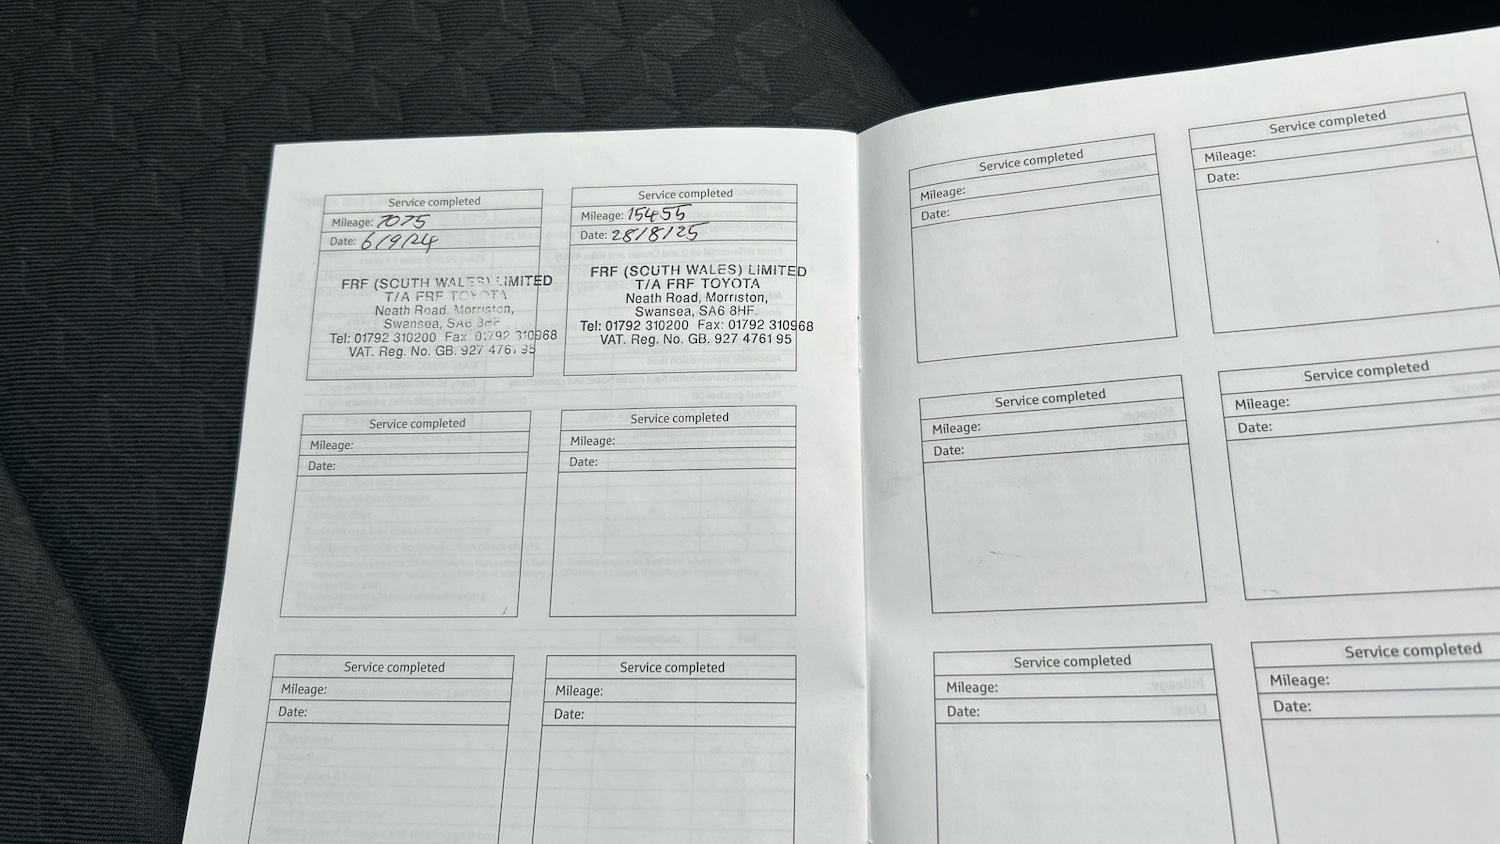 Service completed
Mileage: 7075
Date: 6/9/24
FRF (SOUTH WALES) LIMITED
T/A FRF TOYOTA
Neath Road, Morriston,
Swansea, SA6 8HF
Tel: 01792 310200 Fax: 01792 310968
VAT. Reg. No. GB. 927 4761 95
Service completed
Mileage: 15455
Date: 28/8/25
FRF (SOUTH WALES) LIMITED
T/A FRF TOYOTA
Neath Road, Morriston,
Swansea, SA6 8HF.
Tel: 01792 310200 Fax: 01792 310968
VAT. Reg. No. GB. 927 4761 95
Service completed
Mileage:
Date:
Service completed
Mileage:
Date:
Service completed
Mileage:
Date:
Service completed
Mileage:
Date:
Service completed
Mileage:
Date:
Service completed
Mileage:
Date:
Service completed
Mileage:
Date:
Service completed
Mileage:
Date:
Service completed
Mileage:
Date:
Service completed
Mileage:
Date: